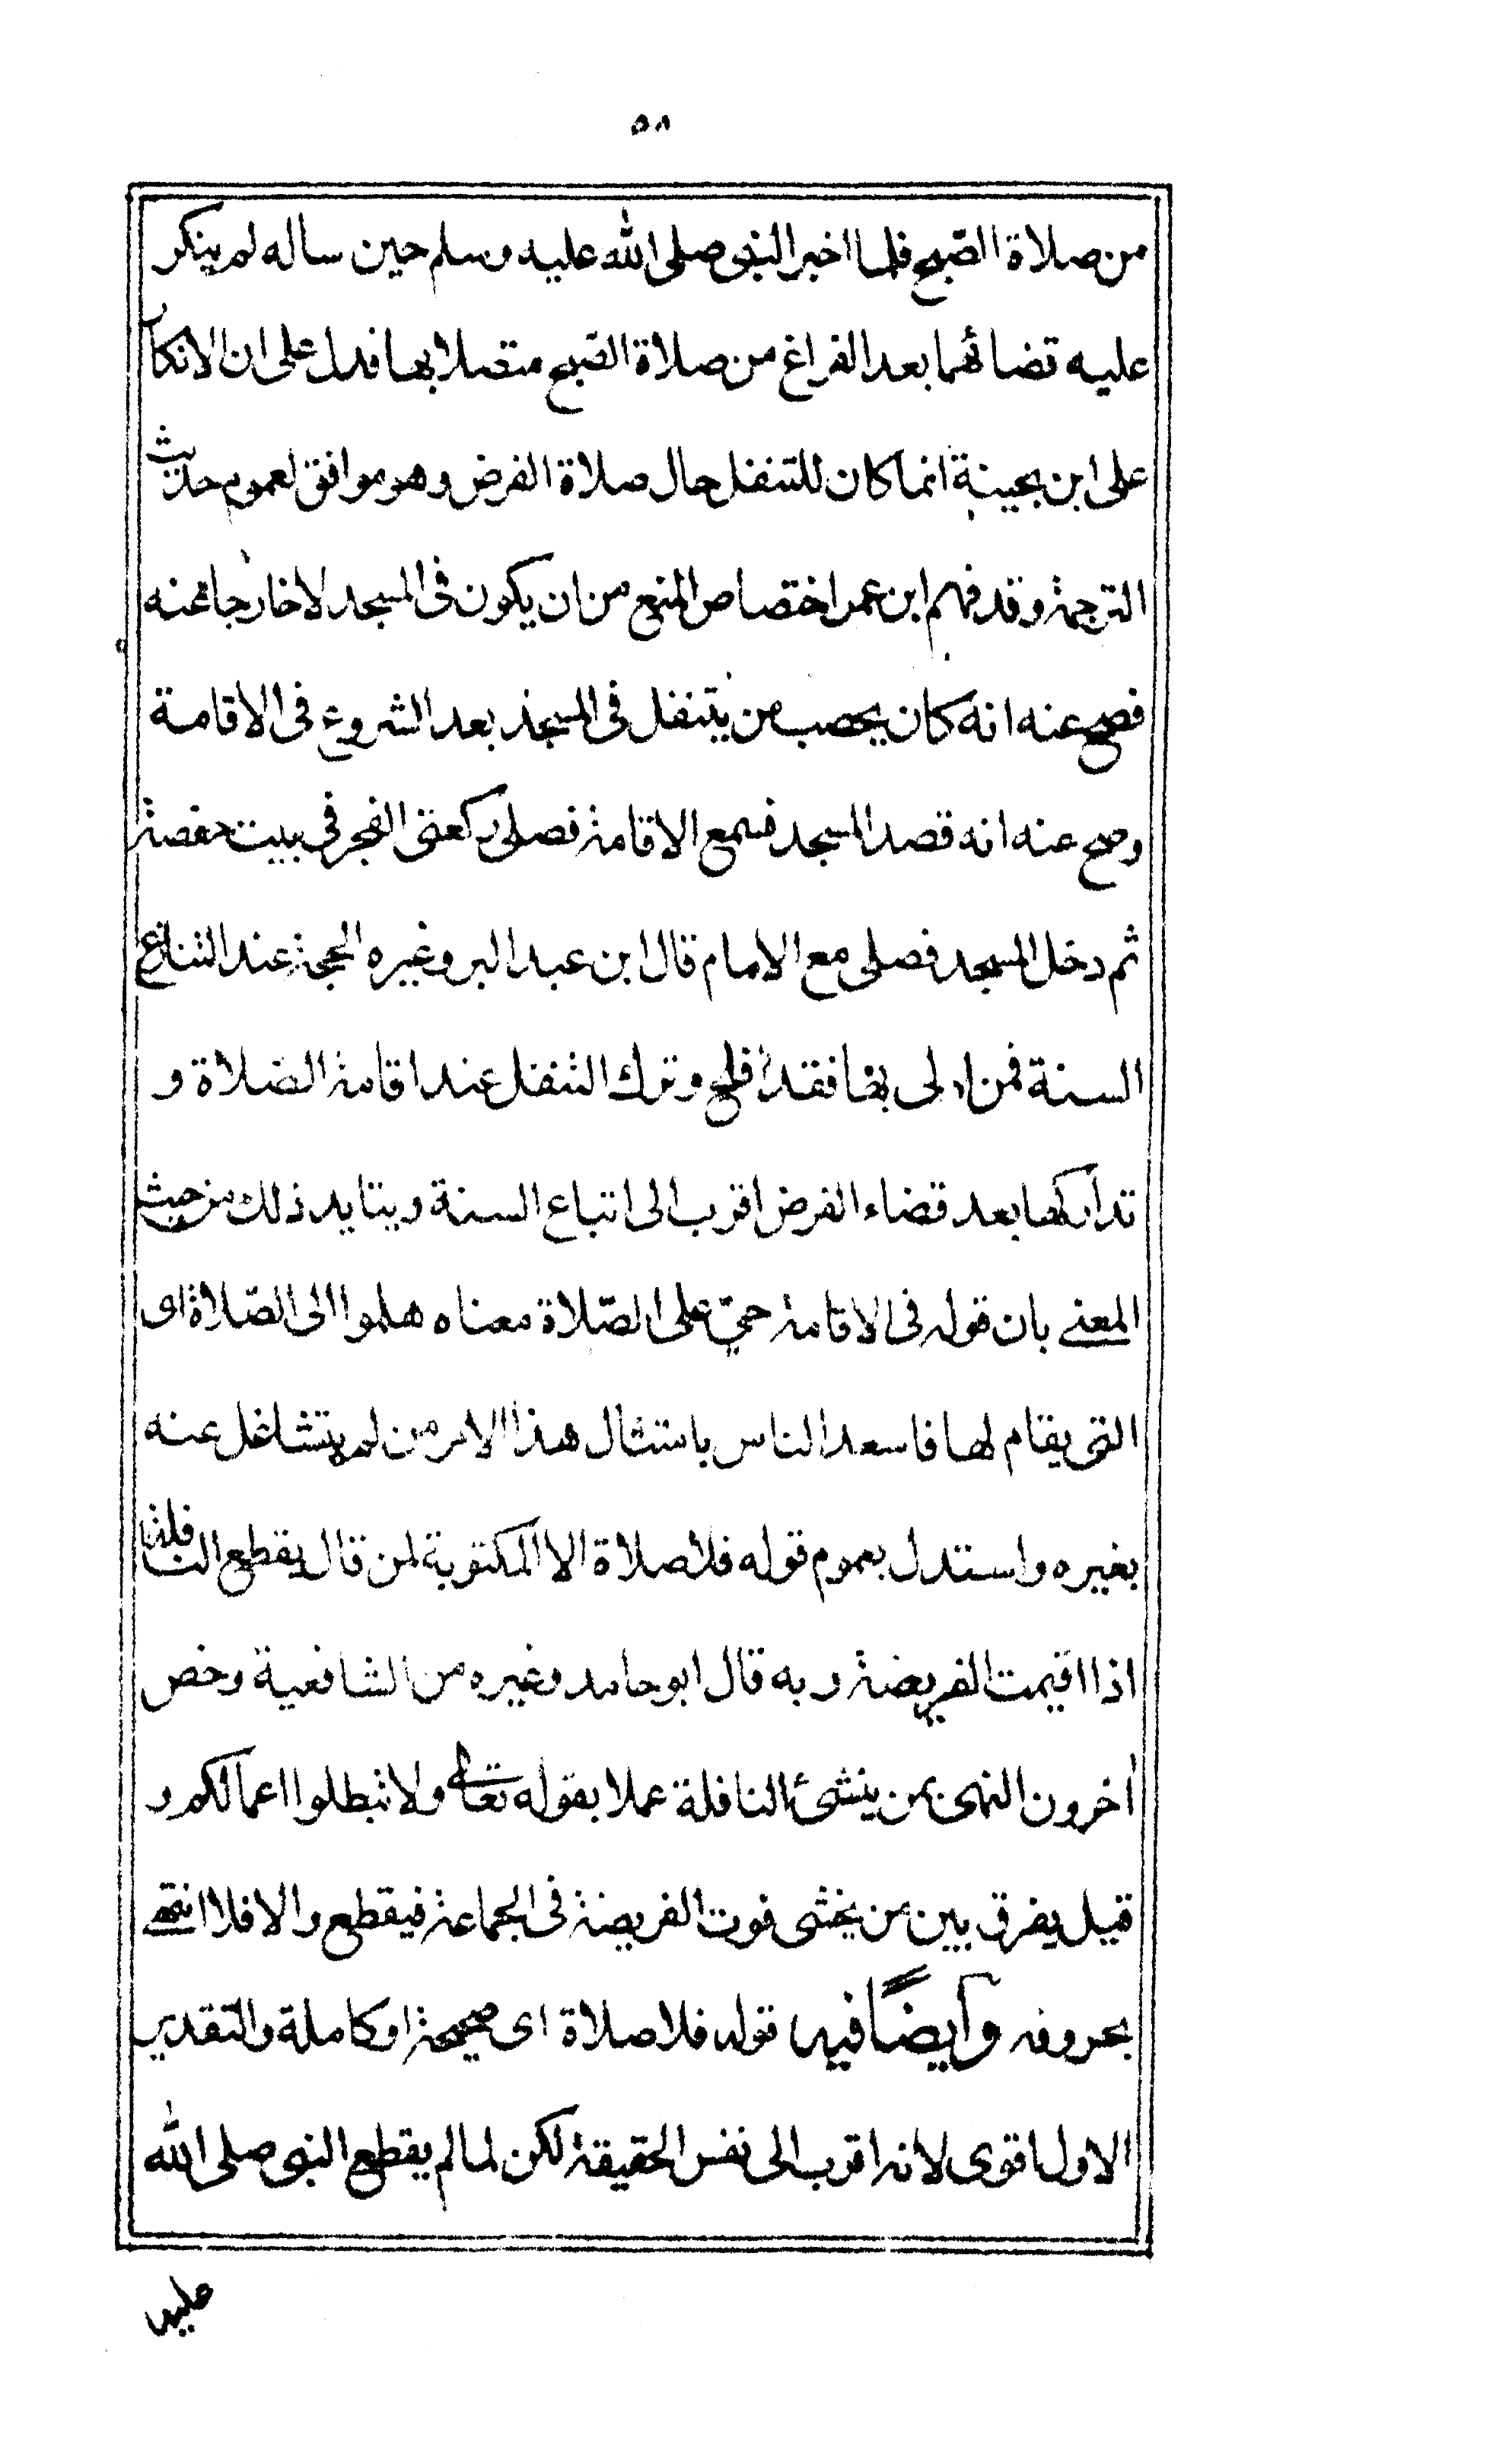 ٥٨
من صلاة الصّبح فلما اخبر النبى صلى الله عليه وسلم حين ساله لم ينكر
عليه قضائهما بعد الفراغ من صلاة الصّبح متصلا بها فدل على ان الانكار
على ابن بحينة انما كان للتنفل حال صلاة الفرض وهو موافق لعموم حديث
الترجمة وقد فهم ابن عمر اختصاص المنع من ان يكون فى المسجد لا خارجا عنه
فصح عنه انه كان يحصب من يتنفل فى المسجد بعد الشروع فى الاقامة
وصح عنه انه قصد المسجد فسمع الاقامة فصلى ركعتى الفجر فى بيت حفصة
ثم دخل المسجد فصلى مع الامام قال ابن عبد البر وغيره الحجة عند التنازع
السنة فمن ادلى بها فقد افلح وترك التنفل عند اقامة الصلاة و
تداركها بعد قضاء الفرض اقرب الى اتباع السنة ويتايد ذلك من حيث
المعنے بان قوله فى الاقامة حىّ على الصّلاة معناه هلموا الى الصّلاة اى
التى يقام لها فاسعد الناس بامتثال هذا الامر من لم يتشاغل عنه
بغيره واستدل بعموم قوله فلا صلاة الا المكتوبة لمن قال يقطع النافلة
اذا اقيمت الفريضة وبه قال ابو حامد وغيره من الشافعية وخص
اخرون النهى بمن ينشئ النافلة عملا بقوله تعالے ولا تبطلوا اعمالكم و
قيل يفرق بين من يخشى فوت الفريضة فى الجماعة فيقطع والا فلا انتهے
بحروفه وايضًا فيه قوله فلا صلاة اى صحيحة او كاملة والتقدير
الاول اقوى لانه اقرب الى نفس الحقيقة لكن لما لم يقطع النبى صلى الله
عليه